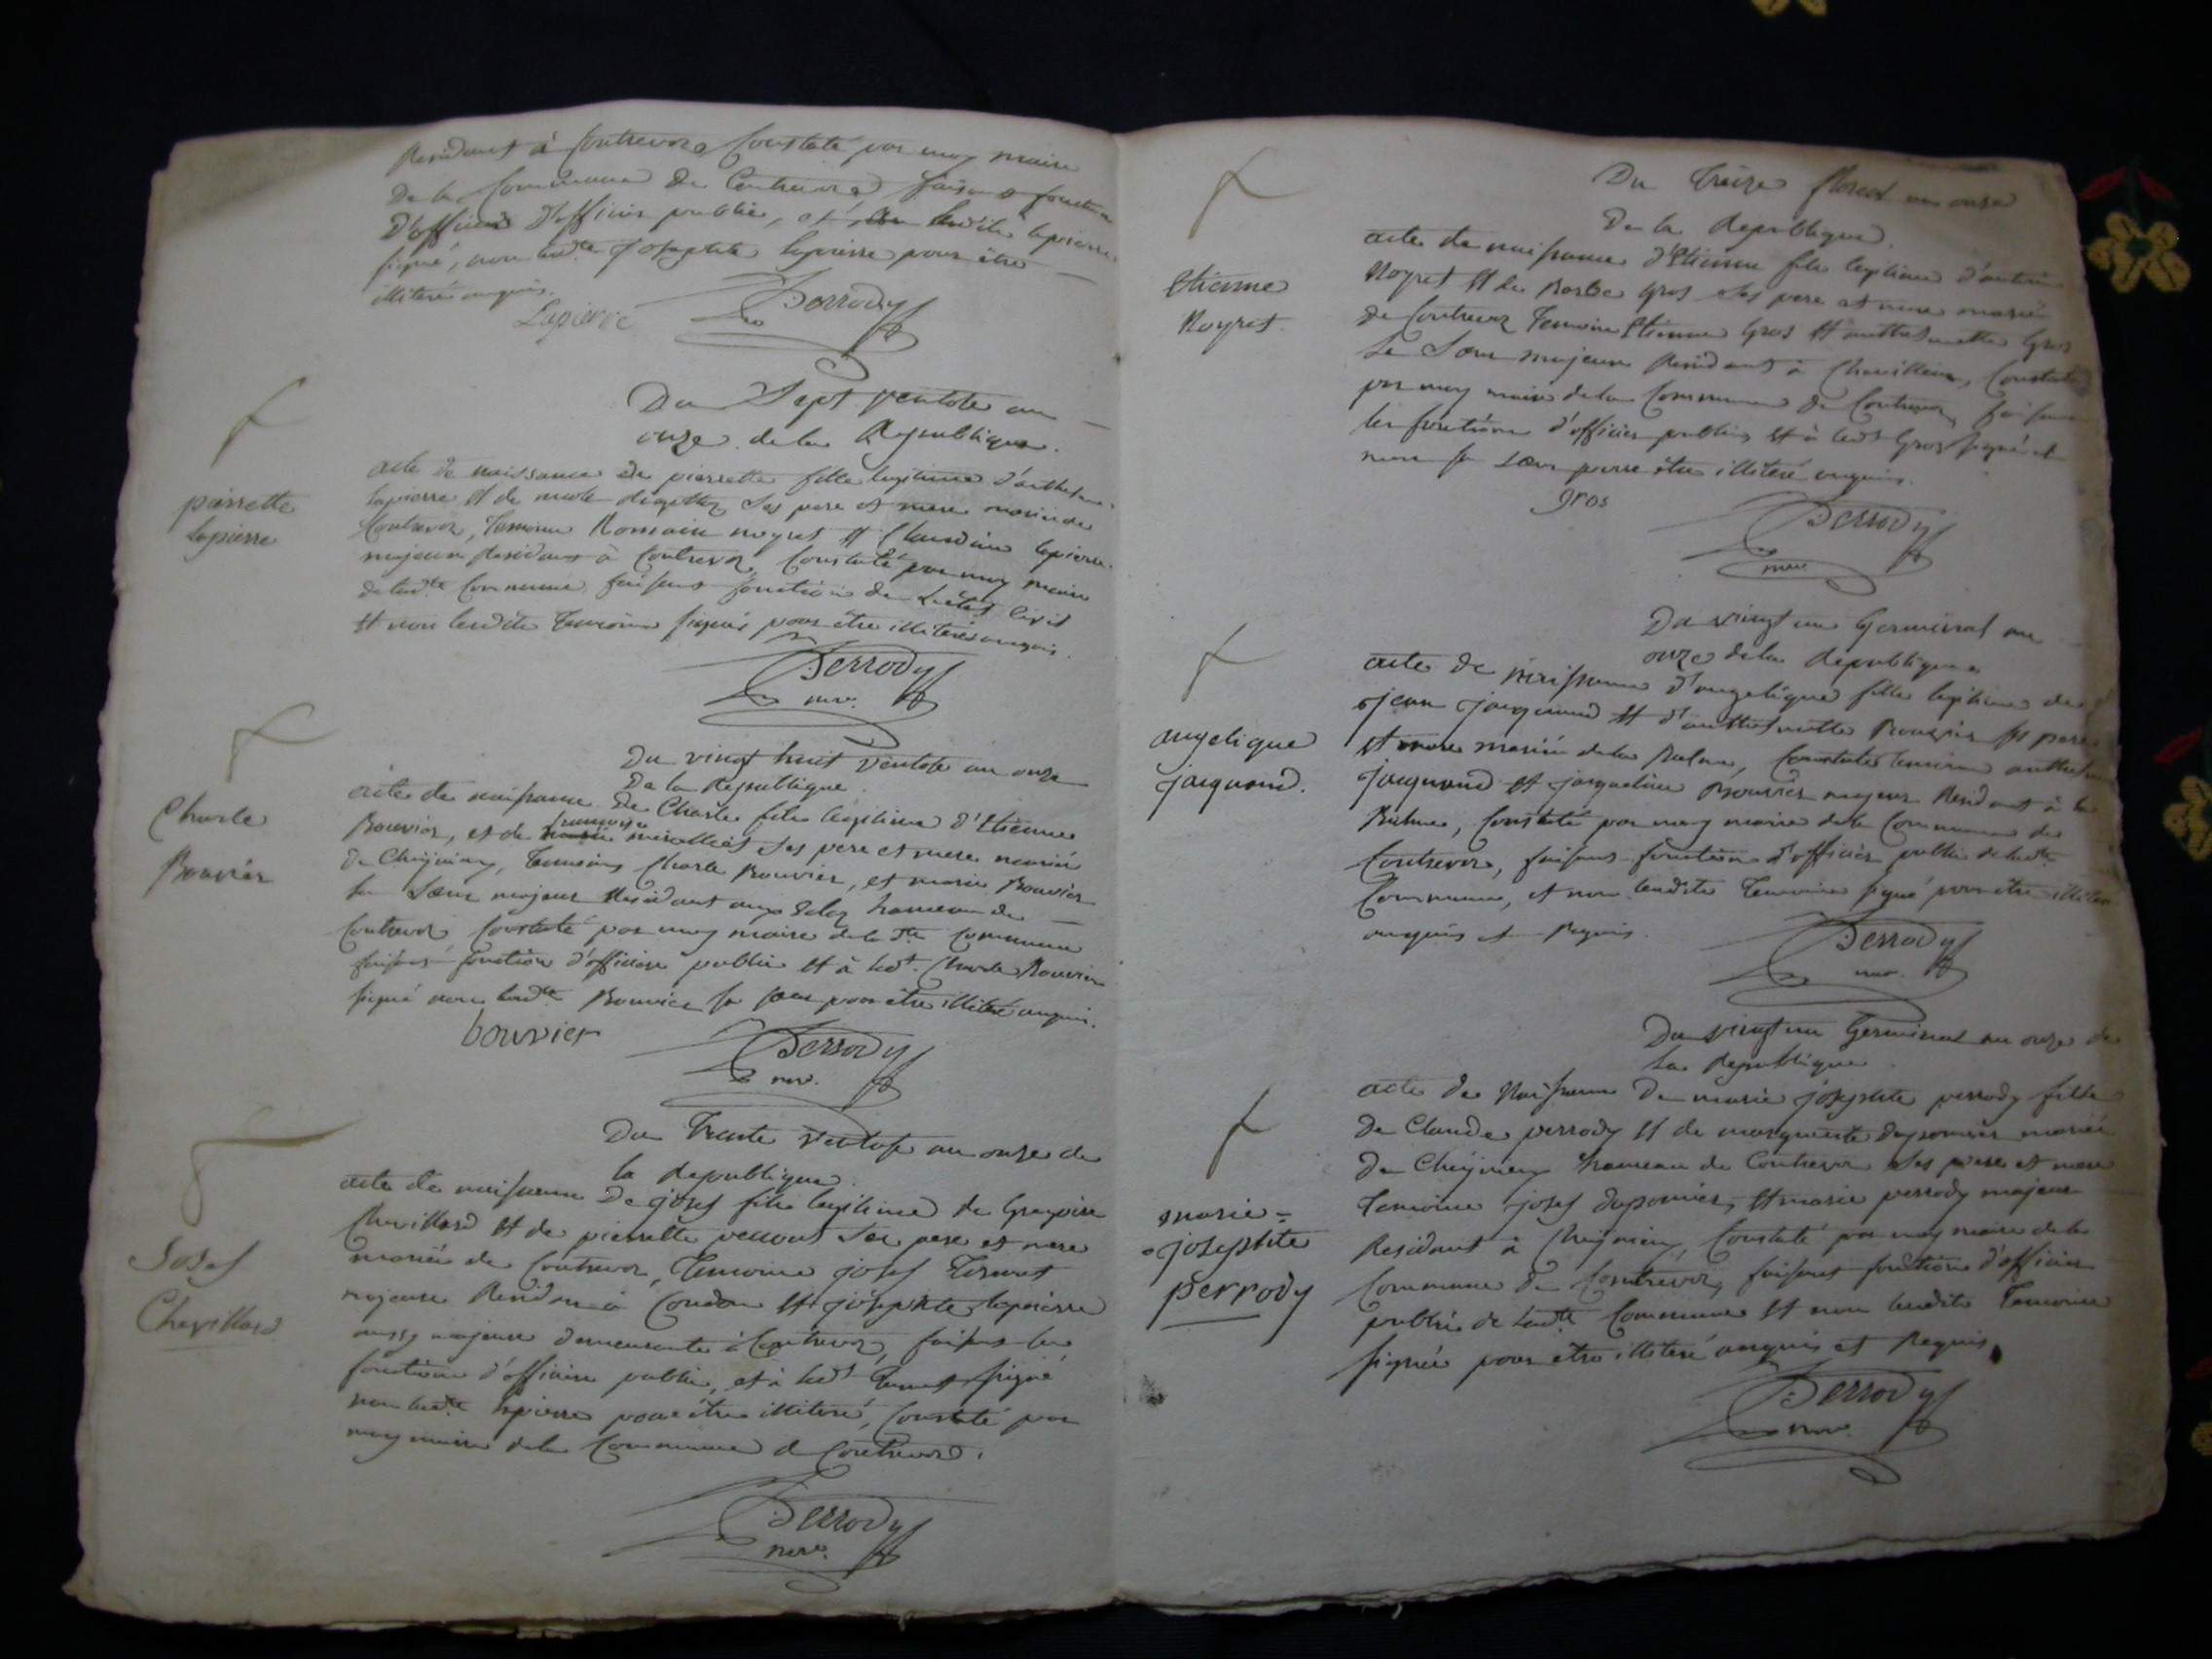 Residant à Contrevoz Constaté par moy maire
De la Commune de Contrevoz faisant fonction
D'officier D'officier publie, et lesdits lapierre
signé, non lad.te josephte lapierre pour être
illiteré enquis.
Lapierre Perrody
Du Sept ventose an
onze de la Republique.
pierrette
lapierre
acte de naissance de pierrette fille legitime d'anthelme
lapierre et de ses pere et mere mariés de
Contrevoz, Temoins Romain noyret et Claudine lapierre
majeur Residant à Contrevoz Constaté par moy maire
de lad.te Commune faisant fonction de L'état Civil
et non lesdits Temoins signés pour être illiterés enquis.
Perrody
mre.
Du vingt huit ventose an onze
De la Republique.
Charle
Bouvier
acte de naissance De Charle fils legitime d'Etienne
Bouvier, et de françoise ses pere et mere mariés
de Cheignieu, Temoins Charle Bouvier, et marie Bouvier
sa Sœur majeur Residant aux hameau de
Contrevoz Constaté par moy maire de la d.te Commune
faisant fonction d'officier publie et à led.t Charle Bouvier
signé non lad.te Bouvier sa sœur pour être illiteré enquis.
bouvier Perrody
mre.
Du Trente ventose an onze de
la Republique.
Josef
Chevillard
acte de naissance De josef fils legitime de Gregoire
Chevillard et de pierrette ses pere et mere
mariés de Contrevoz, Temoins josef
majeur Residant à Condon et josephte lapierre
aussy majeure demeurante à Contrevoz, faisant les
fonction d'officier publie, et à led.t signé
non lad.te lapierre pour être illiteré, Constaté par
moy maire de la Commune de Contrevoz.
Perrody
mre.
Du Treize floreal an onze
De la Republique.
Etienne
Noyret.
acte de naissance d'Etienne fils legitime d'antoine
Noyret et de Gros ses pere et mere mariés
de Contrevoz Temoins Etienne Gros et anthelmette Gros
Sa Sœur majeur Residant à Constaté
par moy maire de la Commune de Contrevoz faisant
les fonction d'officier publie et à led.t Gros signé et
non sa sœur pour être illiteré enquis.
gros
Perrody
mre
Du vingt un Germinal an
onze de la Republique
angelique
jaquand.
acte de naissance d'angelique fille legitime de
jean jaquand et d'anthelmette ses pere
et mere mariés de la Balme, Constaté Temoins anthelme
jaquand et jaqueline Bouvier majeur Residant à la
Balme, Constaté par moy maire de la Commune de
Contrevoz, faisant fonction d'officier publie de lad.te
Commune, et non lesdits Temoins signé pour être illiteré
enquis et Requis.
Perrody
mre.
Du vingt un Germinal an onze de
La Republique
marie=
josephte
perrody
acte de Naissance De marie josephte perrody fille
de Claude perrody et de marguerite mariés
de Cheignieu hameau de Contrevoz ses pere et mere
Temoins josef et marie perrody majeur
Residant à Cheignieu, Constaté par moy maire de la
Commune de Contrevoz, faisant fonction d'officier
publie de lad.te Commune et non lesdits Temoins
signés pour etre illiteré enquis et Requis.
Perrody
mre.